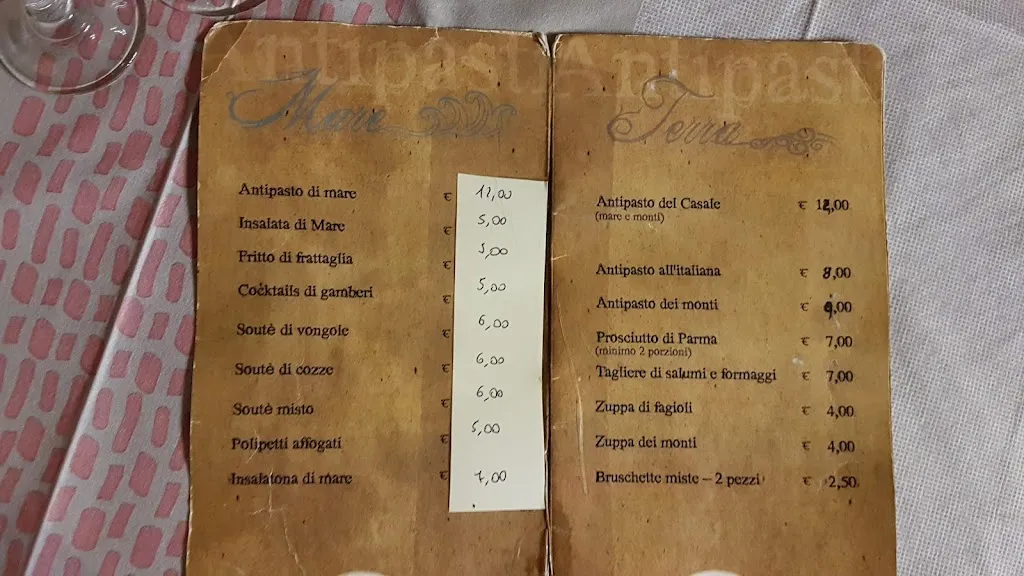 Antipasti
Mare
Antipasto di mare € 12,00
Insalata di Mare € 5,00
Fritto di frattaglia € 5,00
Cocktails di gamberi € 5,00
Soutè di vongole € 6,00
Soutè di cozze € 6,00
Soutè misto € 6,00
Polipetti affogati € 5,00
Insalatona di mare € 7,00
Antipasti
Terra
Antipasto del Casale € 12,00
(mare e monti)
Antipasto all'italiana € 8,00
Antipasto dei monti €
Prosciutto di Parma € 7,00
(minimo 2 porzioni)
Tagliere di salumi e formaggi € 7,00
Zuppa di fagioli € 4,00
Zuppa dei monti € 4,00
Bruschette miste – 2 pezzi € 2,50